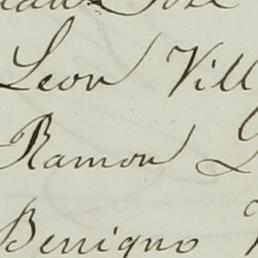 Leon Vill
Ramon
Benigno